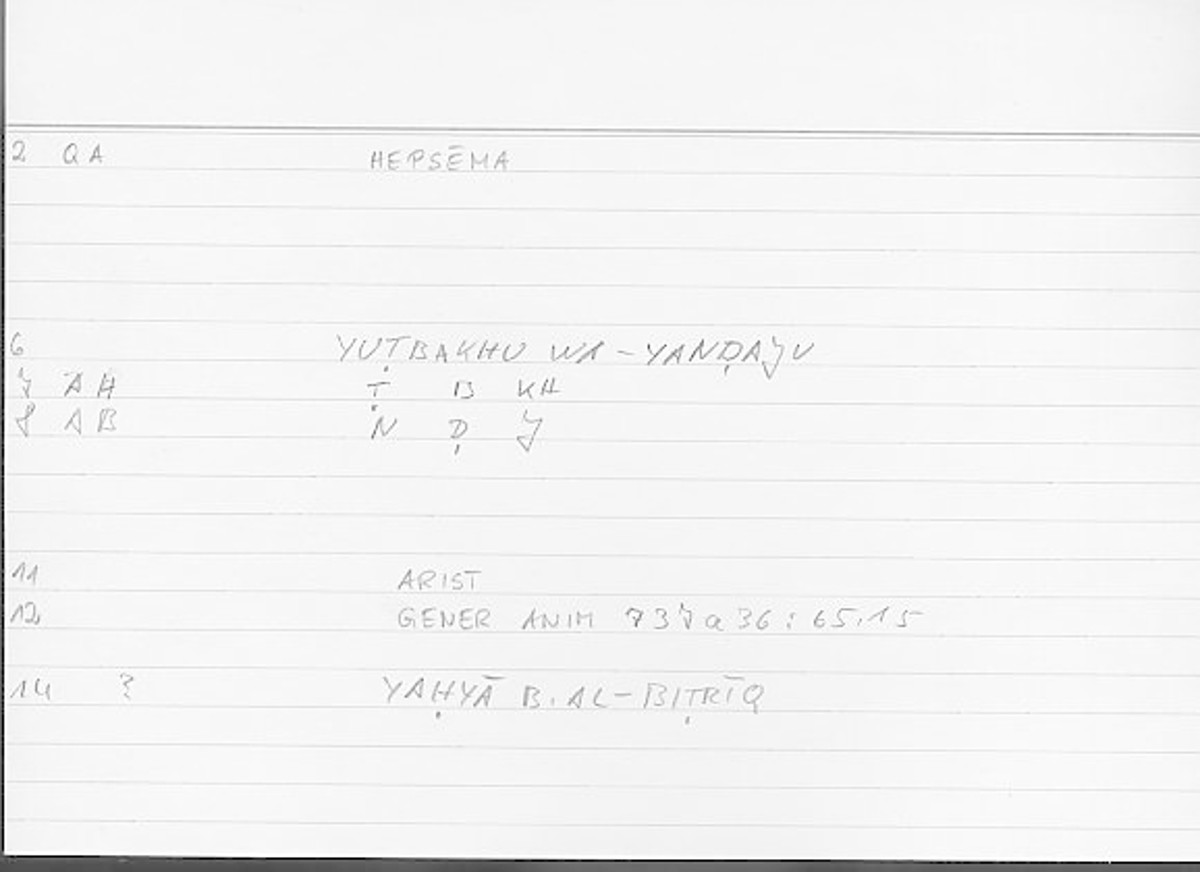 2 QA HEPSĒMA
6 YUṬBAKHU WA-YANḌAJU
7 AH Ṭ B KH
8 AB N Ḍ J
11 ARIST
12 GENER ANIM 737a36: 65.15
14 ? YAḤYĀ B. AL-BIṬRĪQ